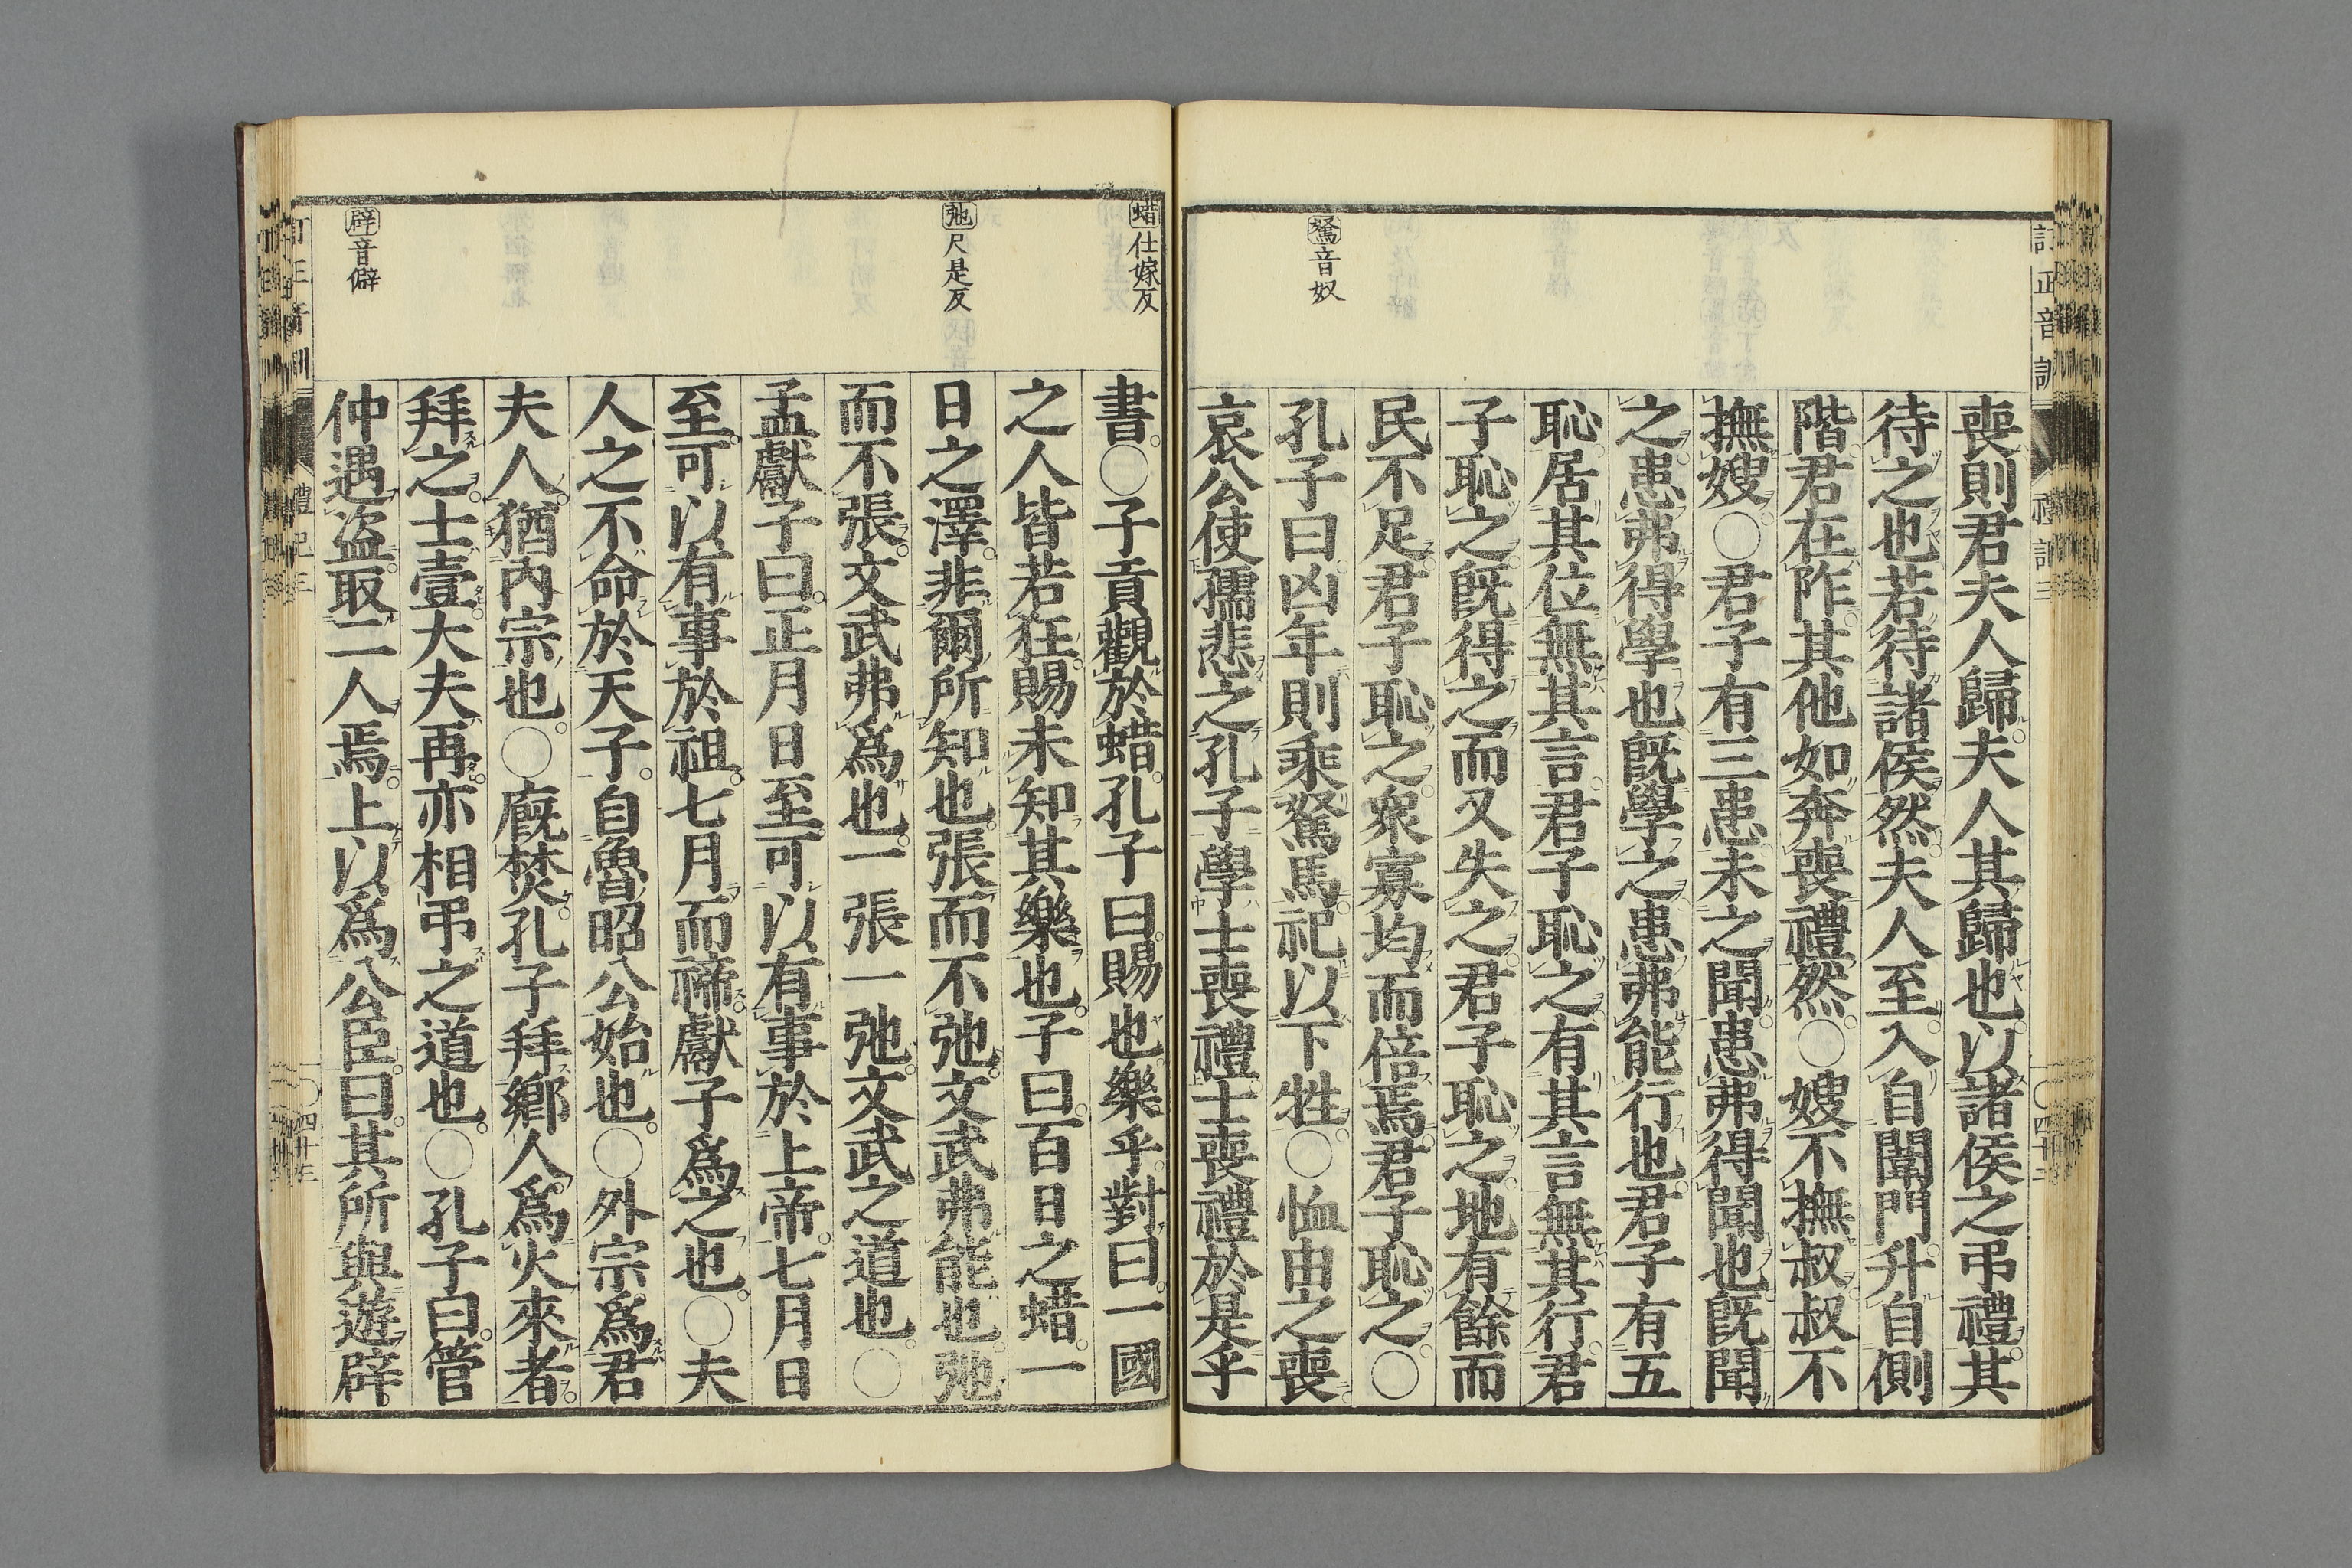 喪則君夫人歸夫人其歸也以諸侯之弔禮其
待之也若待諸侯然夫人至入自闈門升自側
階君在阼其他如奔喪禮然○嫂不撫叔叔不
撫嫂○君子有三患未之聞患弗得聞也旣聞
之患弗得學也旣學之患弗能行也君子有五
恥居其位無其言君子恥之有其言無其行君
子恥之旣得之而又失之君子恥之地有餘而
民不足君子恥之衆寡均而倍焉君子恥之○
孔子曰凶年則乘駑馬祀以下牲○恤由之喪
哀公使孺悲之孔子學士喪禮士喪禮於是乎
駑音奴
書○子貢觀於蜡孔子曰賜也樂乎對曰一國
之人皆若狂賜未知其樂也子曰百日之蜡一
日之澤非爾所知也張而不弛文武弗能也弛
而不張文武弗爲也一張一弛文武之道也○
孟獻子曰正月日至可以有事於上帝七月日
至可以有事於祖七月而禘獻子爲之也○夫
人之不命於天子自魯昭公始也○外宗爲君
夫人猶內宗也○廐焚孔子拜鄉人爲火來者
拜之士壹大夫再亦相弔之道也○孔子曰管
仲遇盜取二人焉上以爲公臣曰其所與遊辟
蜡仕嫁反
弛尺是反
辟音僻